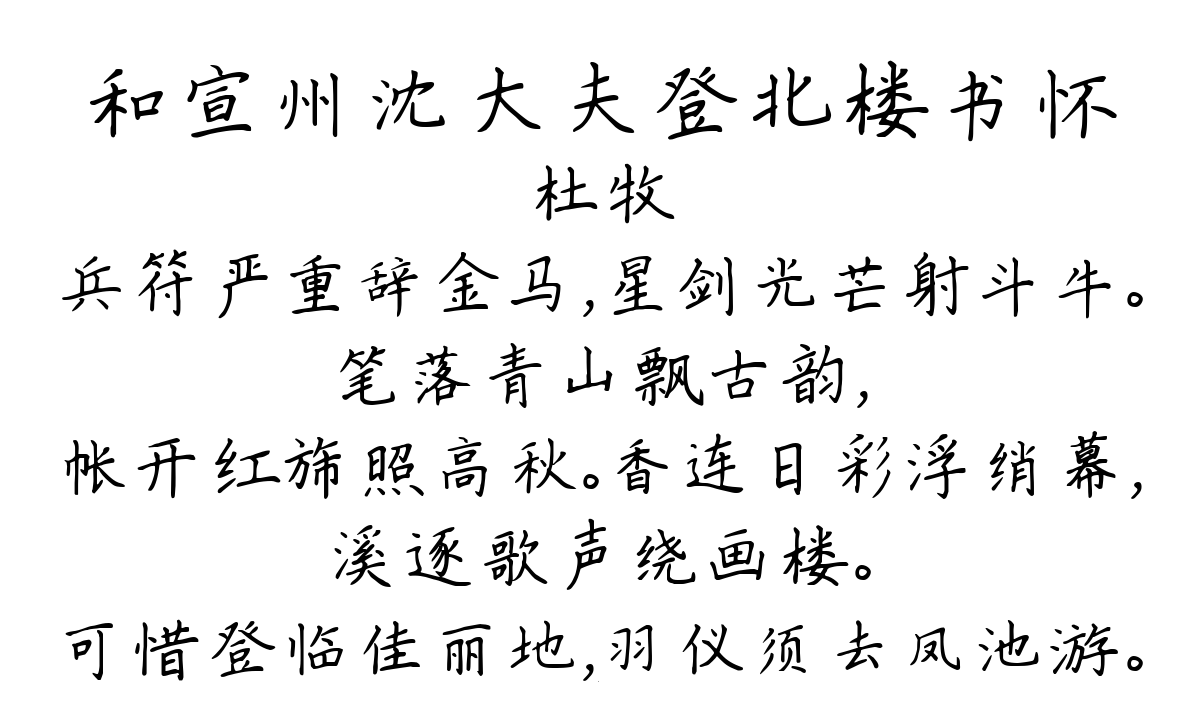 和宣州沈大夫登北楼书怀
杜牧
兵符严重辞金马,星剑光芒射斗牛。
笔落青山飘古韵,
帐开红旆照高秋。香连日彩浮绡幕,
溪逐歌声绕画楼。
可惜登临佳丽地,羽仪须去凤池游。